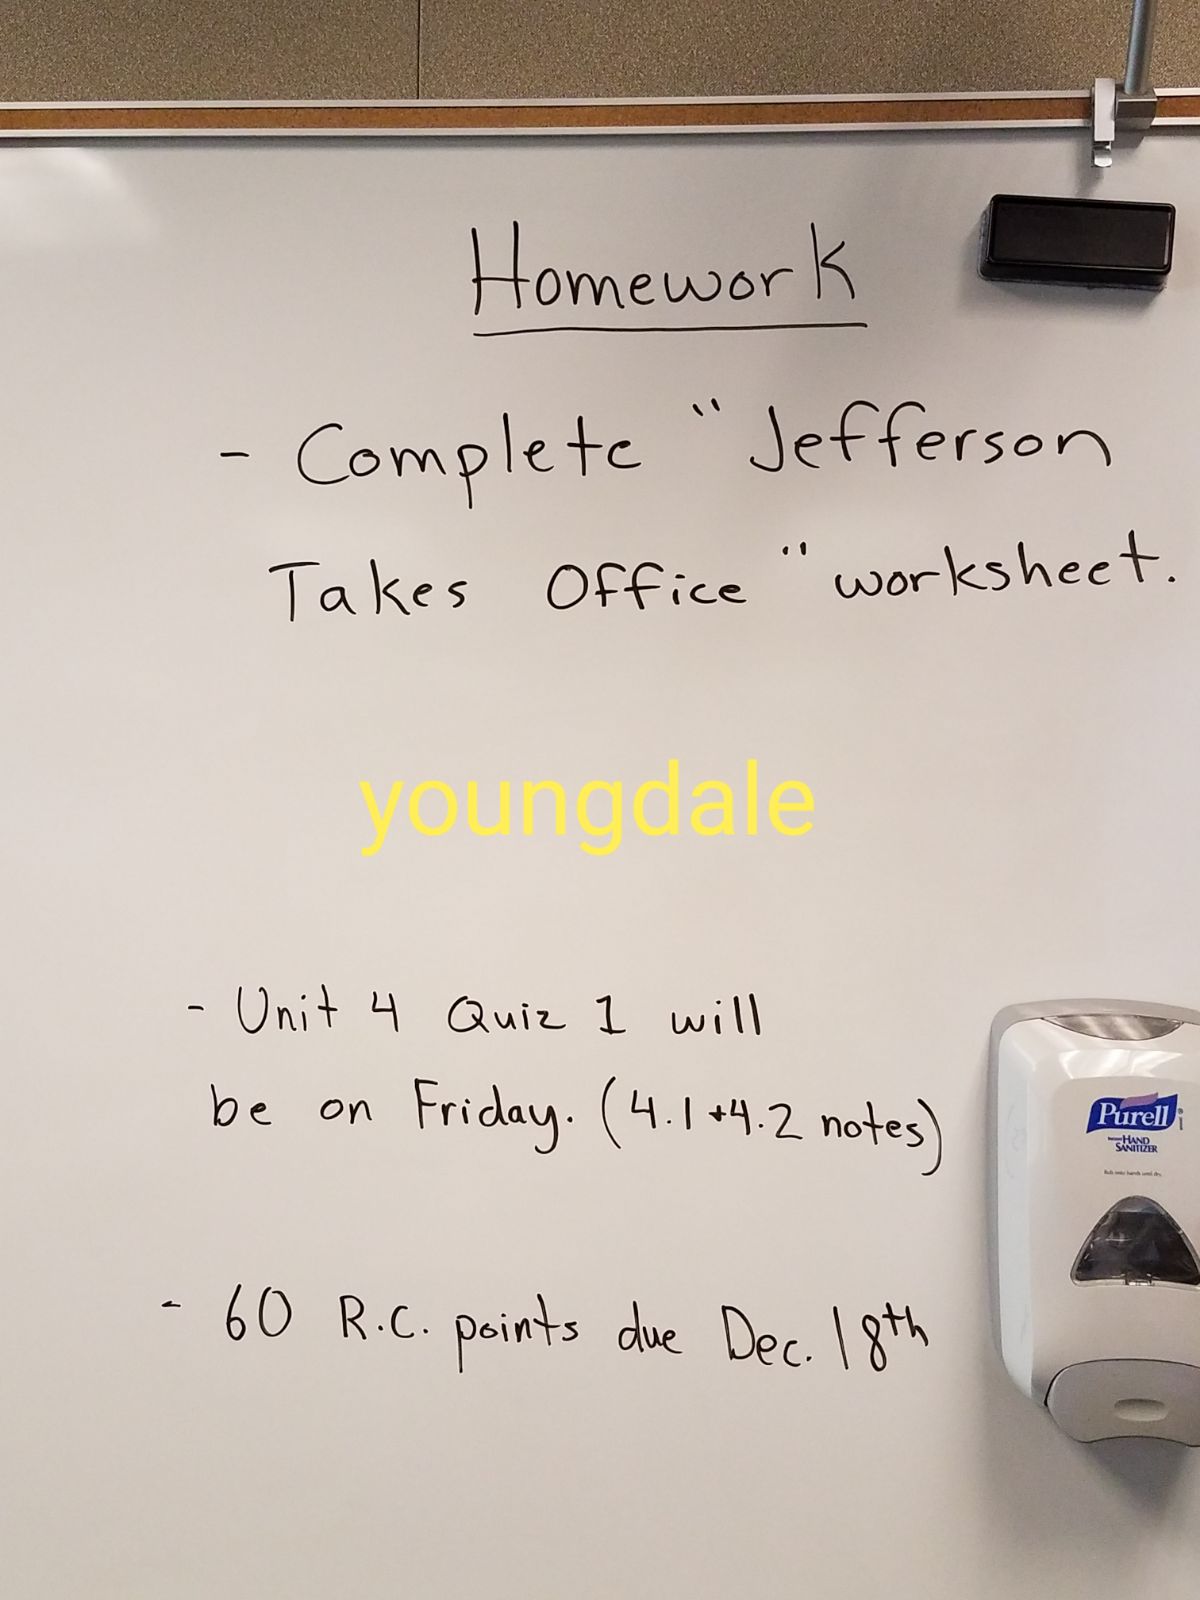 Homework
- Complete "Jefferson
Takes Office" worksheet.
youngdale
- Unit 4 Quiz 1 will
be on Friday. (4.1+4.2 notes)
- 60 R.C. points due Dec. 18th
Purell
HAND
SANITIZER
Rub onto hands until dry.